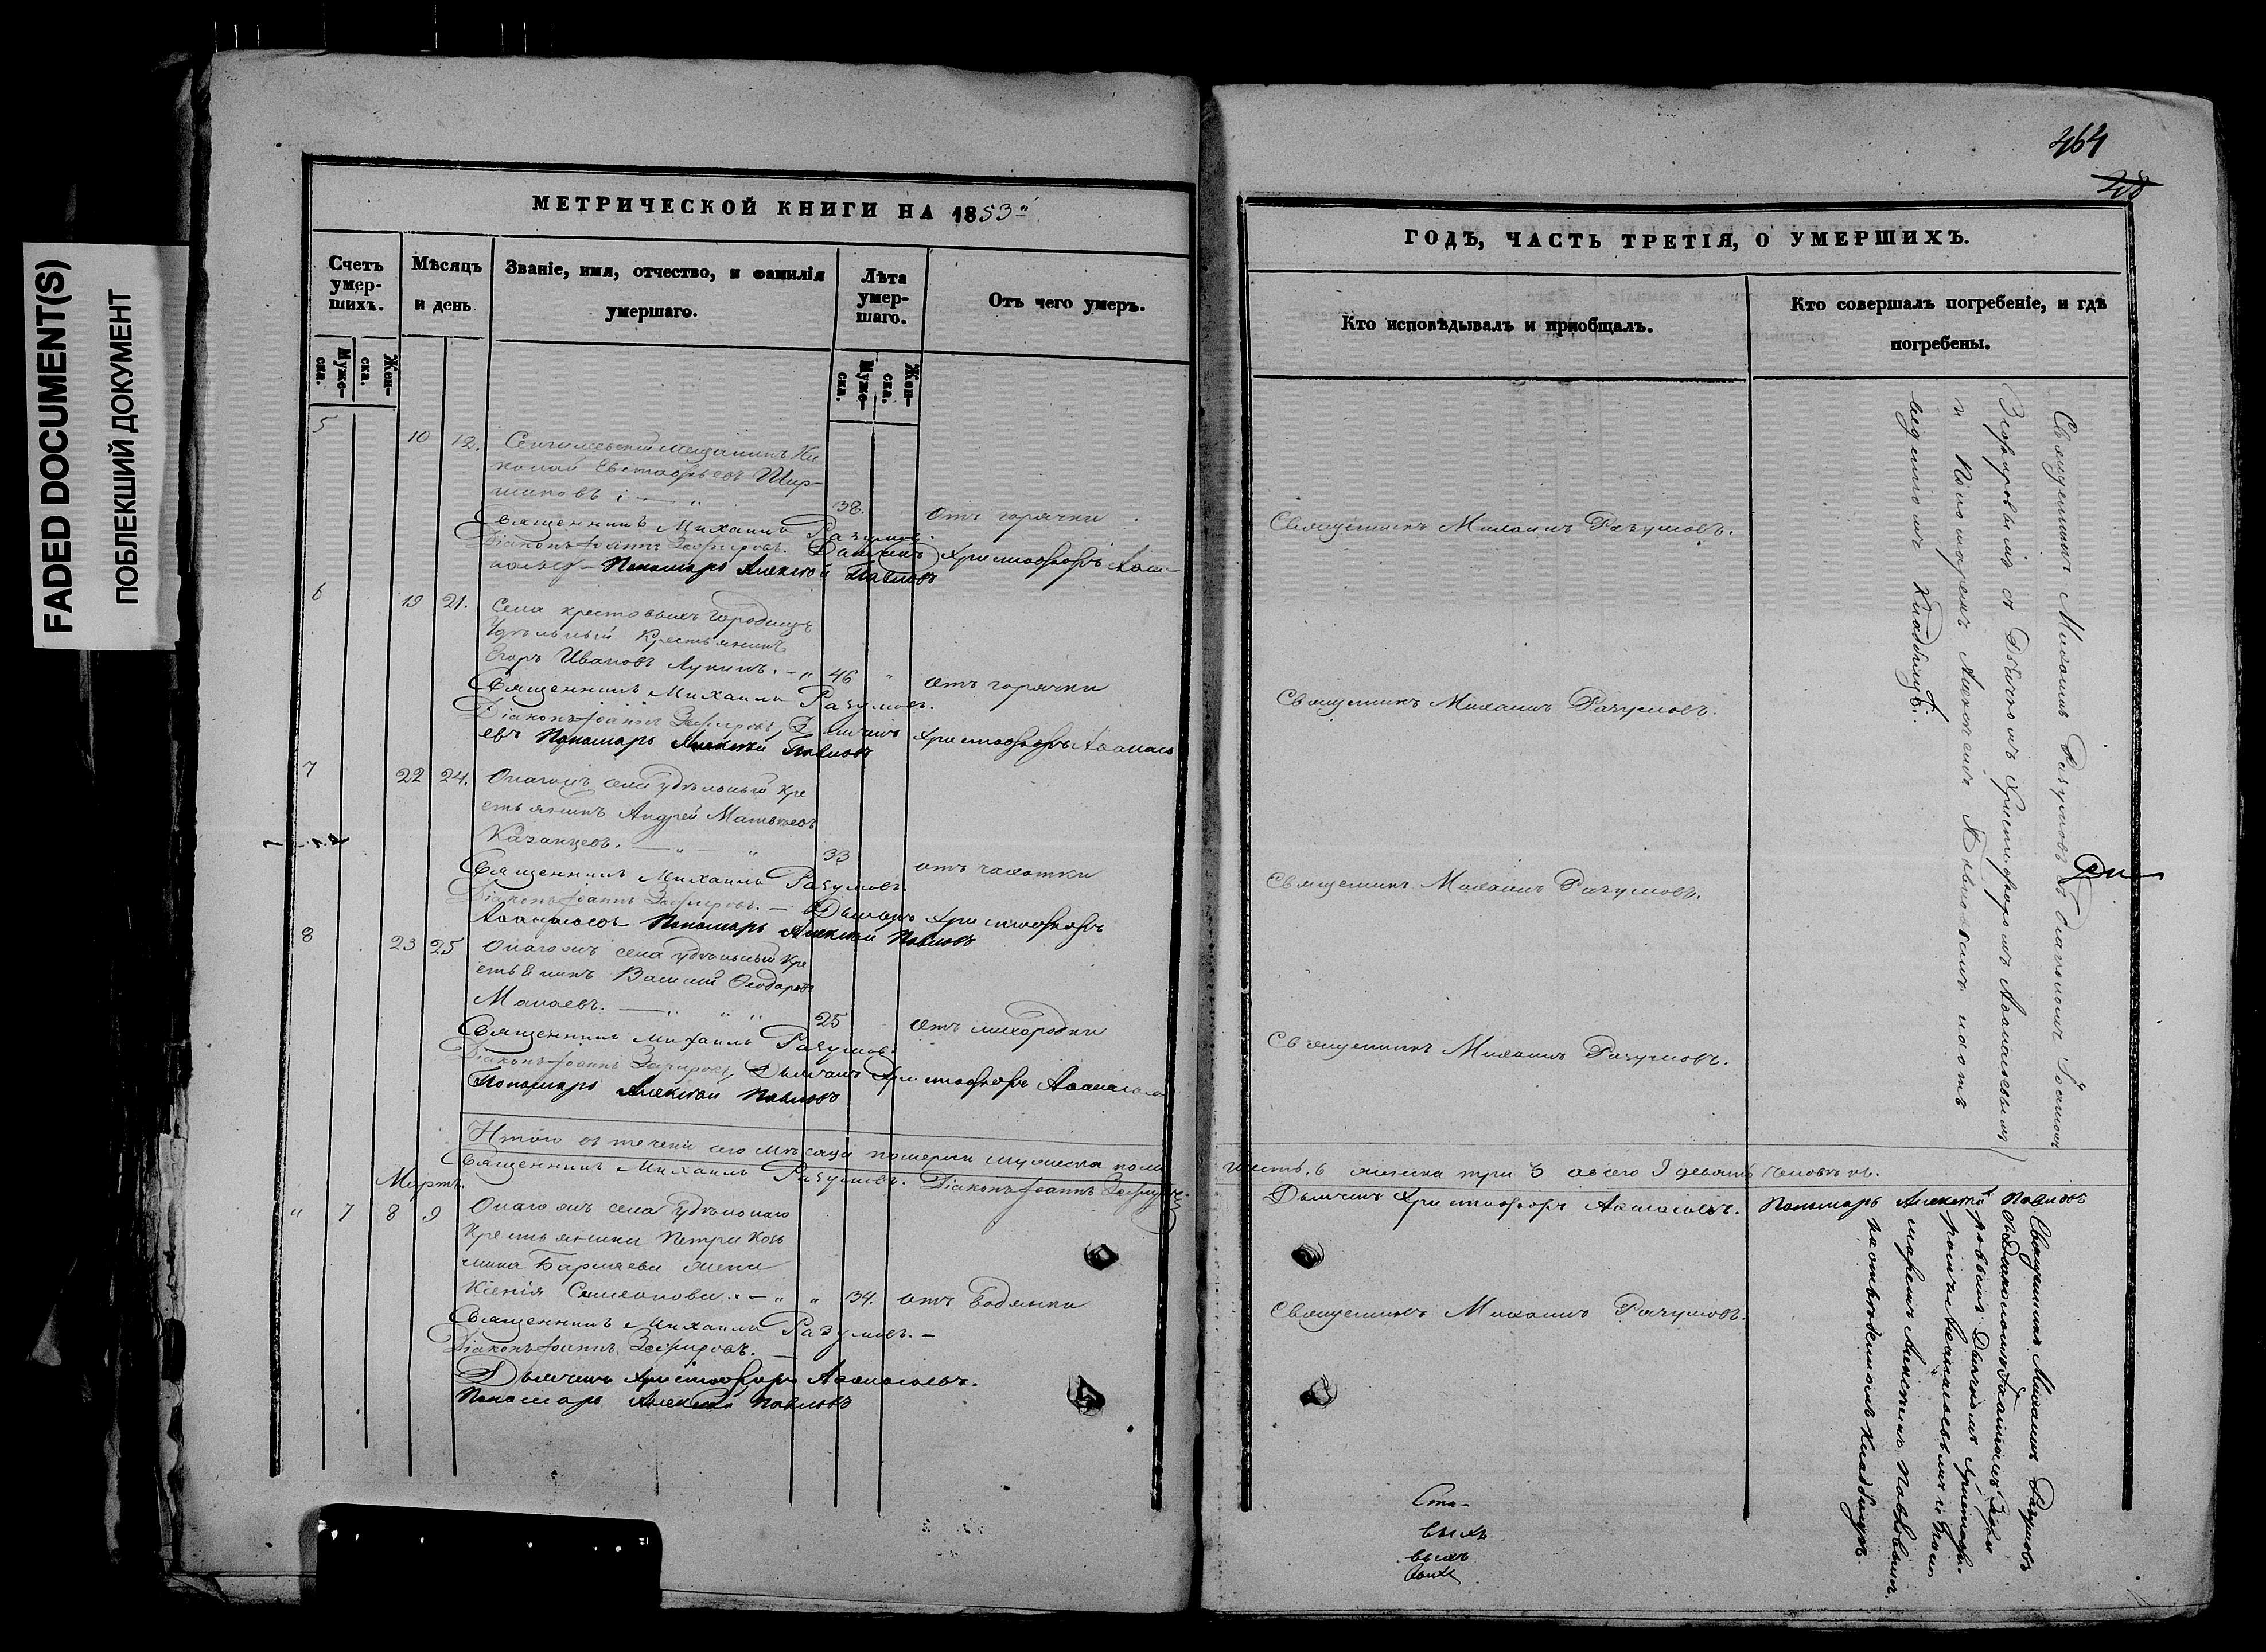 FADED DOCUMENT(S)
ПОБЛЕКШИЙ ДОКУМЕНТ
МЕТРИЧЕСКОЙ КНИГИ НА 1853й
Счетъ умер-шихъ.
Муже-ска.
Жен-ска.
Мѣсяцъ и день
Званіе, имя, отчество, и фамилія
умершаго.
Лѣта умер-шаго.
Муже-ска.
Жен-ска.
Отъ чего умеръ.
5 10 12. Сенгилеевскій мещанинъ Ни
колай Евстафьевъ Шир-
шиковъ 38. отъ горячки
Священникъ Михаилъ Разумовъ.
Діаконъ Іоаннъ Зефировъ. Дьячекъ Христофоръ Аѳан-
асьевъ – Пономарь Алексѣй Павловъ
6 19 21. Села крестовыхъ Городищъ
Удѣльный Крестьянинъ
Егоръ Ивановъ Лунинъ. 46 " отъ горячки
Священникъ Михаилъ Разумовъ.
Діаконъ Іоаннъ Зефировъ, Дьячекъ Христофоръ Аѳанась
евъ Пономарь Алексѣй Павловъ
7 22 24. Онагожъ села Удѣльный Кре
стьянинъ Андрей Матвѣевъ
Казанцевъ. 33 отъ чахотки
Священникъ Михаилъ Разумовъ.
Діаконъ Іоаннъ Зефировъ. – Дьячекъ Христофоръ
Аѳанасьевъ Пономарь Алексѣй Павловъ
8 23 25 Онагожъ села удѣльный Кре
стьянинъ Василий Ѳеодоровъ
Манаевъ. 25 отъ лихорадки
Священникъ Михаилъ Разумовъ.
Діаконъ Іоаннъ Зефировъ, Дьячекъ Христофоръ Аѳанасьевъ
Пономарь Алексѣй Павловъ
Итого въ теченіи сего мѣсяца померли мужеска пола
Священникъ Михаилъ Разумовъ. Діаконъ Іоаннъ Зефировъ.
Мартъ.
" 7 8 9 Онагожъ села Удѣльнаго
Крестьянина Петра Козь
мина жена
Ксенія 34. отъ водянки
Священникъ Михаилъ Разумовъ. –
Діаконъ Іоаннъ Зефировъ.
Дьячекъ Христофоръ Аѳанасьевъ.
Пономарь Алексѣй Павловъ
464
ГОДЪ, ЧАСТЬ ТРЕТІЯ, О УМЕРШИХЪ.
Кто исповѣдывалъ и пріобщалъ.
Кто совершалъ погребеніе, и гдѣ
погребены.
Священникъ Михаилъ Разумовъ.
Священникъ Михаилъ Разумовъ.
Священникъ Михаилъ Разумовъ.
Священникъ Михаилъ Разумовъ.
Священникъ Михаилъ Разумовъ съ Діакономъ Іоанномъ
Зефировымъ съ Дьячкомъ Христофоромъ Аѳанасьевымъ
и Пономаремъ Алексѣемъ Павловымъ на отъ
веденномъ Кладбищѣ.
шесть, 6 женска три 3 а всего 9 девять человѣкъ.
Дьячекъ Христофоръ Аѳанасьевъ. Пономарь Алексѣй Павловъ
Священникъ Михаилъ Разумовъ.
Священникъ Михаилъ Разумовъ
съ Діакономъ Іоанномъ Зефи
ровымъ Дьячкомъ Христофо-
ромъ Аѳанасьевымъ и Поно
маремъ Алексѣемъ Павловымъ.
на отведенномъ Кладбищѣ.